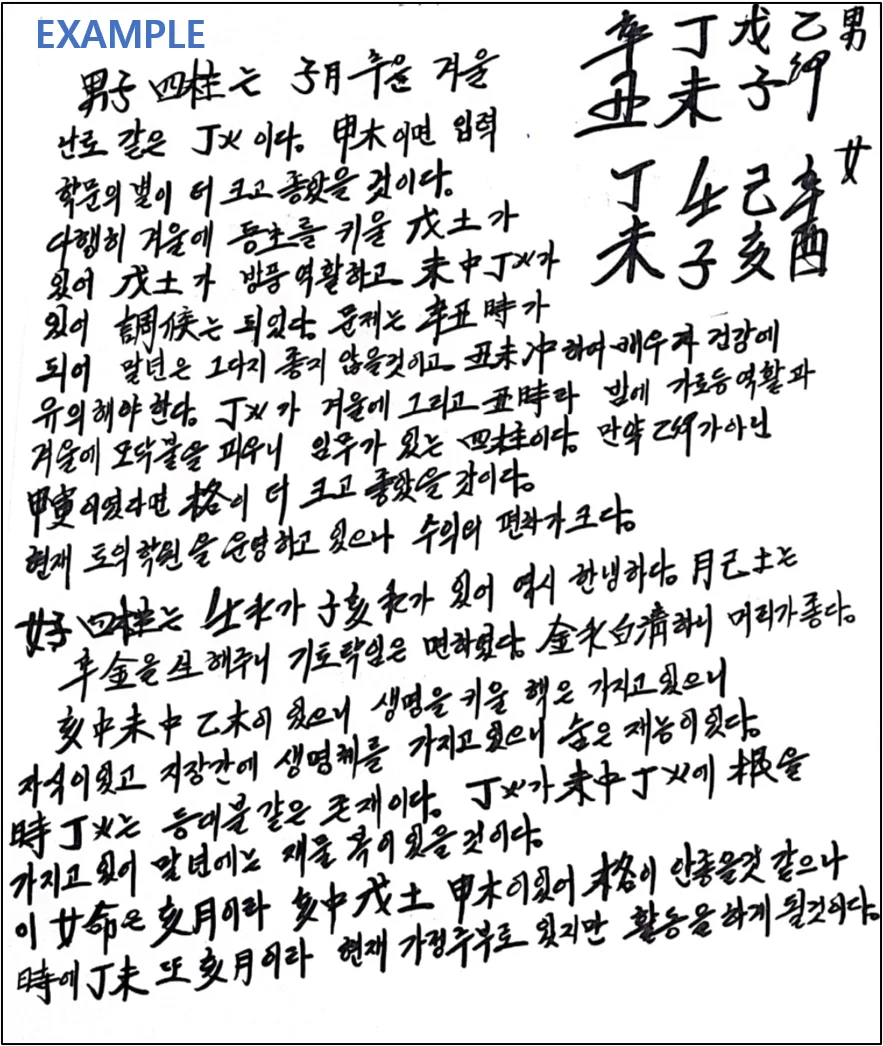 EXAMPLE
辛 丁 戊 乙 男
丑 未 子 卯
丁 壬 己 辛 女
未 子 亥 酉
男子 四柱는 子月 추운 겨울
난로 같은 丁火이다. 甲木이면 입력
학문의 별이 더 크고 좋았을 것이다.
다행히 겨울에 등초를 키울 戊土가
있어 戊土가 방풍역활하고 未中丁火가
있어 調候는 되있다. 문제는 辛丑時가
되어 말년은 그다지 좋지 않을것이고 丑未冲하여 배우자 건강에
유의해야 한다. 丁火가 겨울에 그리고 丑時라 밤에 가로등역활과
겨울에 모닥불을 피우니 임무가 있는 四柱이다. 만약 乙卯가아닌
甲寅이였다면 格이 더 크고 좋았을 것이다.
현재 토의학원을 운영하고 있으나 수의의 편차가 크다.
女子 四柱는 壬水가 子亥水가 있어 역시 한냉하다. 月己土는
辛金을 生해주니 기토탁임은 면하였다. 金水白濟하니 머리가좋다.
亥中未中 乙木이 있으니 생명을 키울 핵은 가지고있으니
자식이있고 지장간에 생명체를 가지고있으니 숨은 재능이있다.
時丁火는 등대불같은 존재이다. 丁火가 未中丁火에 根을
가지고있어 말년에는 재물 복이있을것이다.
이 女命은 亥月이라 亥中戊土 甲木이있어 格이 안좋을것 같으나
時에丁未 또亥月이라 현재 가정주부로 있지만 활동을하게 될것이다.